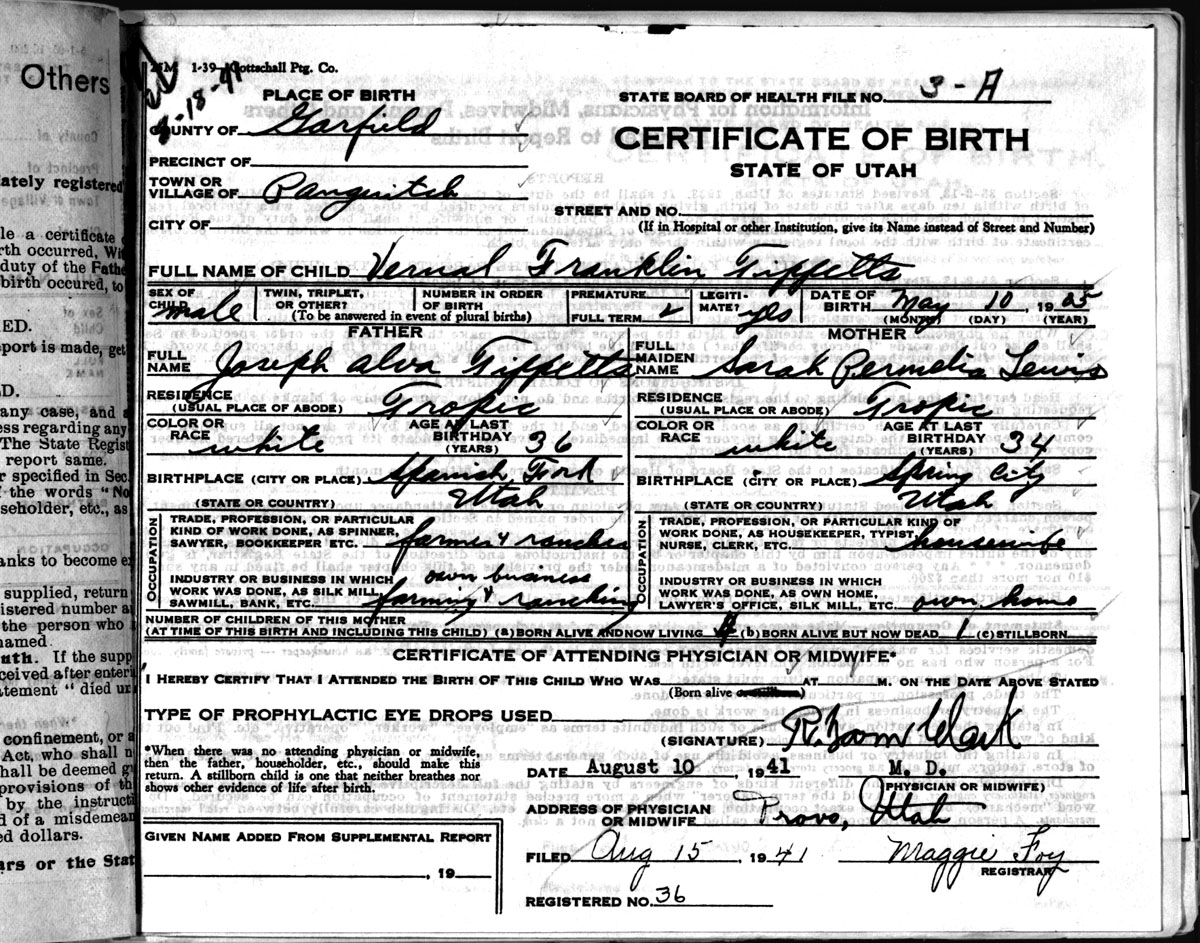 Others
ately registered
le a certificate
rth occurred,
duty of the Fathe
birth occured, to
ED.
port is made, get
D.
any case, and a
ess regarding any
The State Regist
report same.
r specified in Sec.
f the words "No
seholder, etc., as
anks to become e
supplied, return
istered number a
the person who
named
uth. If the supp
ceived after enteri
atement " died un
confinement, or a
Act, who shall n
hall be deemed g
provisions of th
by the instructi
d of a misdemean
ed dollars.
ars or the Stat
25M 1-39—Gottschall Ptg. Co.
8-18-41
PLACE OF BIRTH
COUNTY OF Garfield
PRECINCT OF
TOWN OR
VILLAGE OF Panguitch
CITY OF
STATE BOARD OF HEALTH FILE NO. 3-A
CERTIFICATE OF BIRTH
STATE OF UTAH
STREET AND NO.
(If in Hospital or other Institution, give its Name instead of Street and Number)
FULL NAME OF CHILD Vernal Franklin Tippetts
SEX OF
CHILD male
TWIN, TRIPLET,
OR OTHER?
NUMBER IN ORDER
OF BIRTH
(To be answered in event of plural births)
PREMATURE
FULL TERM
LEGITI-
MATE? yes
DATE OF
BIRTH May 10, 1905
(MONTH) (DAY) (YEAR)
FATHER
FULL
NAME Joseph Alva Tippetts
RESIDENCE
(USUAL PLACE OF ABODE) Tropic
COLOR OR
RACE white
AGE AT LAST
BIRTHDAY
(YEARS) 36
BIRTHPLACE (CITY OR PLACE) Spanish Fork
(STATE OR COUNTRY) Utah
OCCUPATION
TRADE, PROFESSION, OR PARTICULAR
KIND OF WORK DONE, AS SPINNER,
SAWYER, BOOKKEEPER ETC. farmer & rancher
INDUSTRY OR BUSINESS IN WHICH own business
WORK WAS DONE, AS SILK MILL,
SAWMILL, BANK, ETC. farming & ranching
MOTHER
FULL
MAIDEN
NAME Sarah Permelia Lewis
RESIDENCE
(USUAL PLACE OR ABODE) Tropic
COLOR OR
RACE white
AGE AT LAST
BIRTHDAY
(YEARS) 34
BIRTHPLACE (CITY OR PLACE) Spring City
(STATE OR COUNTRY) Utah
OCCUPATION
TRADE, PROFESSION, OR PARTICULAR KIND OF
WORK DONE, AS HOUSEKEEPER, TYPIST,
NURSE, CLERK, ETC. housewife
INDUSTRY OR BUSINESS IN WHICH
WORK WAS DONE, AS OWN HOME,
LAWYER'S OFFICE, SILK MILL, ETC. own home
NUMBER OF CHILDREN OF THIS MOTHER
(AT TIME OF THIS BIRTH AND INCLUDING THIS CHILD) (a) BORN ALIVE AND NOW LIVING (b) BORN ALIVE BUT NOW DEAD 1 (c) STILLBORN
CERTIFICATE OF ATTENDING PHYSICIAN OR MIDWIFE*
I HEREBY CERTIFY THAT I ATTENDED THE BIRTH OF THIS CHILD WHO WAS AT M. ON THE DATE ABOVE STATED
(Born alive )
TYPE OF PROPHYLACTIC EYE DROPS USED
(SIGNATURE) Clark
*When there was no attending physician or midwife,
then the father, householder, etc., should make this
return. A stillborn child is one that neither breathes nor
shows other evidence of life after birth.
DATE August 10, 1941 M. D.
(PHYSICIAN OR MIDWIFE)
ADDRESS OF PHYSICIAN
OR MIDWIFE Provo, Utah
GIVEN NAME ADDED FROM SUPPLEMENTAL REPORT
, 19
FILED Aug 15 1941 Maggie Foy
REGISTRAR
REGISTERED NO. 36